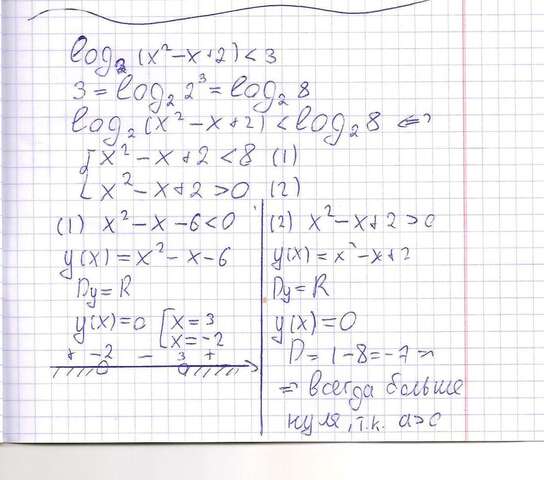 log₂(x²-x+2)<3
3=log₂2³=log₂8
log₂(x²-x+2)<log₂8 <=>
{x²-x+2<8 (1)
x²-x+2>0 (2)
(1) x²-x-6<0
y(x)=x²-x-6
Dy=R
y(x)=0 [x=3
x=-2
+ -2 - 3 +
(2) x²-x+2>0
y(x)=x²-x+2
Dy=R
y(x)=0
D=1-8=-7 =>
=> всегда больше
нуля, т.к. a>0